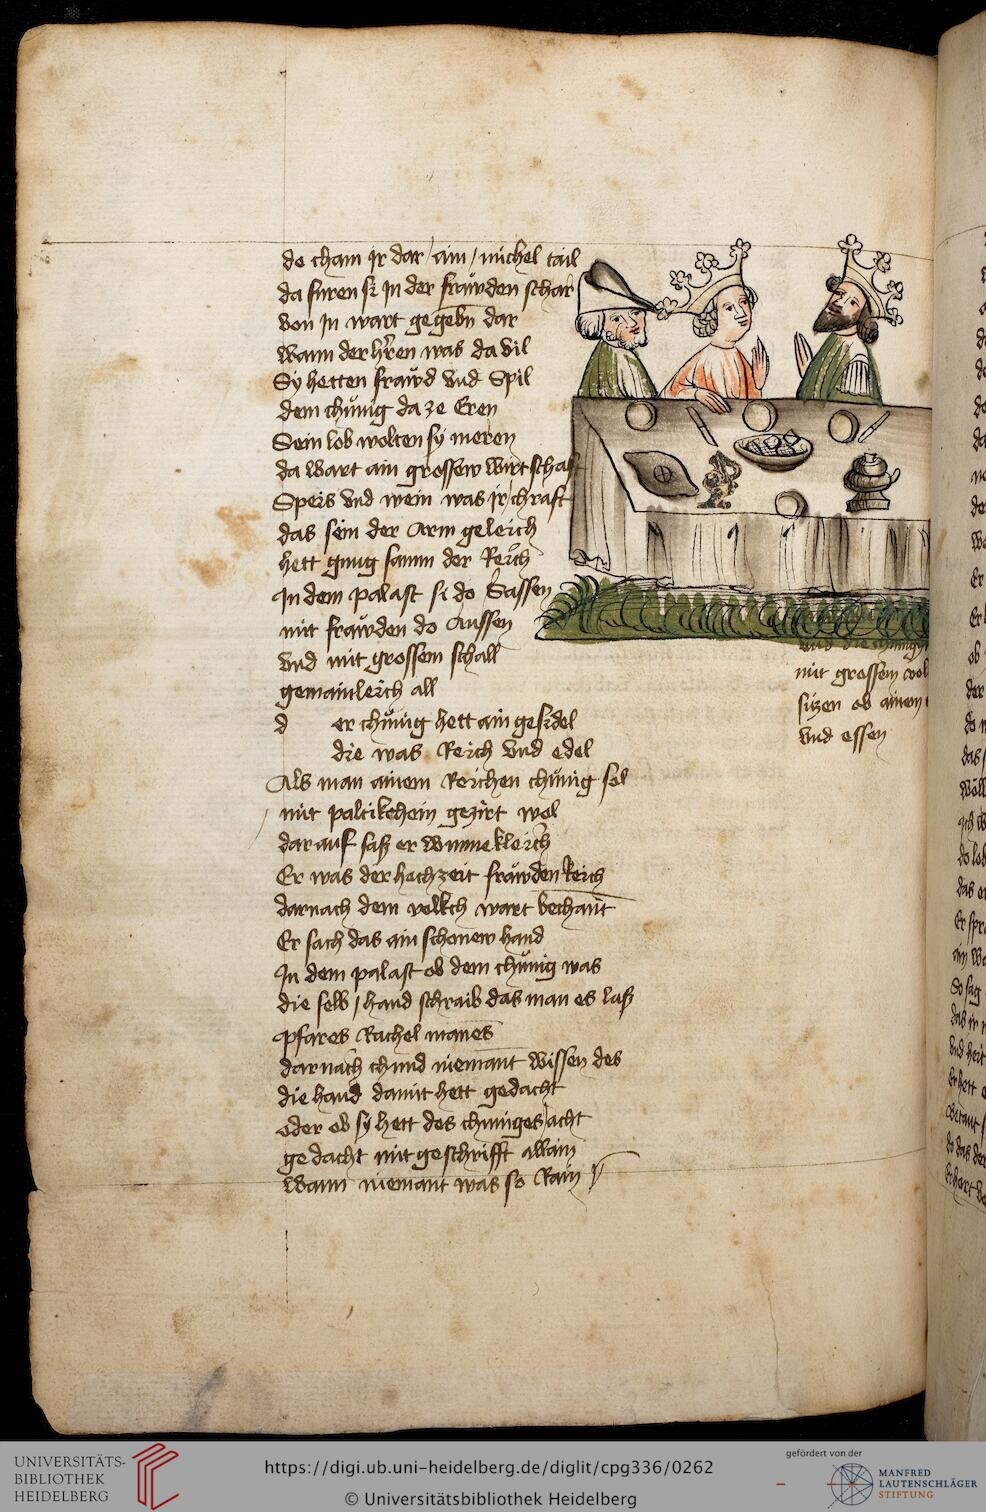 de cham ir dar ain michel tail
da furen si In der fräwden schar
von In wart gegebn dar
wann der hren was da vil
Sy hetten fräwd vnd Spil
dem chünig da ze Eren
Sein lob wolten sy meren
da wart ain grossew wirtschaft
Speis vnd wein was ir chraft
das sein der Arm geleich
hett gnug samm der Reich
In dem palast si do Sassen
mit fräwden do Aussen
vnd mit grossem schall
gemainleich all
d er chünig hett ain gesidel
die was Reich vnd edel
Als man ainem Reichen chünig sol
mit paltikehein geziert wol
darauf sasz er wunnekleich
Er was der hochzeit fräwden Reich
darnach dem volkch wart bechant
Er sach das ain schonew hand
In dem palast ob dem chünig was
die selb hand schraib das man es lasz
pfares Rachel manes
darnach chund niemant wissen des
die hand damit hett gedacht
oder ob sy hett des chuniges acht
gedacht mit geschrifft allain
wann niemant was so Rain
vnd die
mit grossem
sizen ob ainem
vnd essen
UNIVERSITÄTS-
BIBLIOTHEK
HEIDELBERG
https://digi.ub.uni-heidelberg.de/diglit/cpg336/0262
© Universitätsbibliothek Heidelberg
gefördert von der
MANFRED
LAUTENSCHLÄGER
STIFTUNG